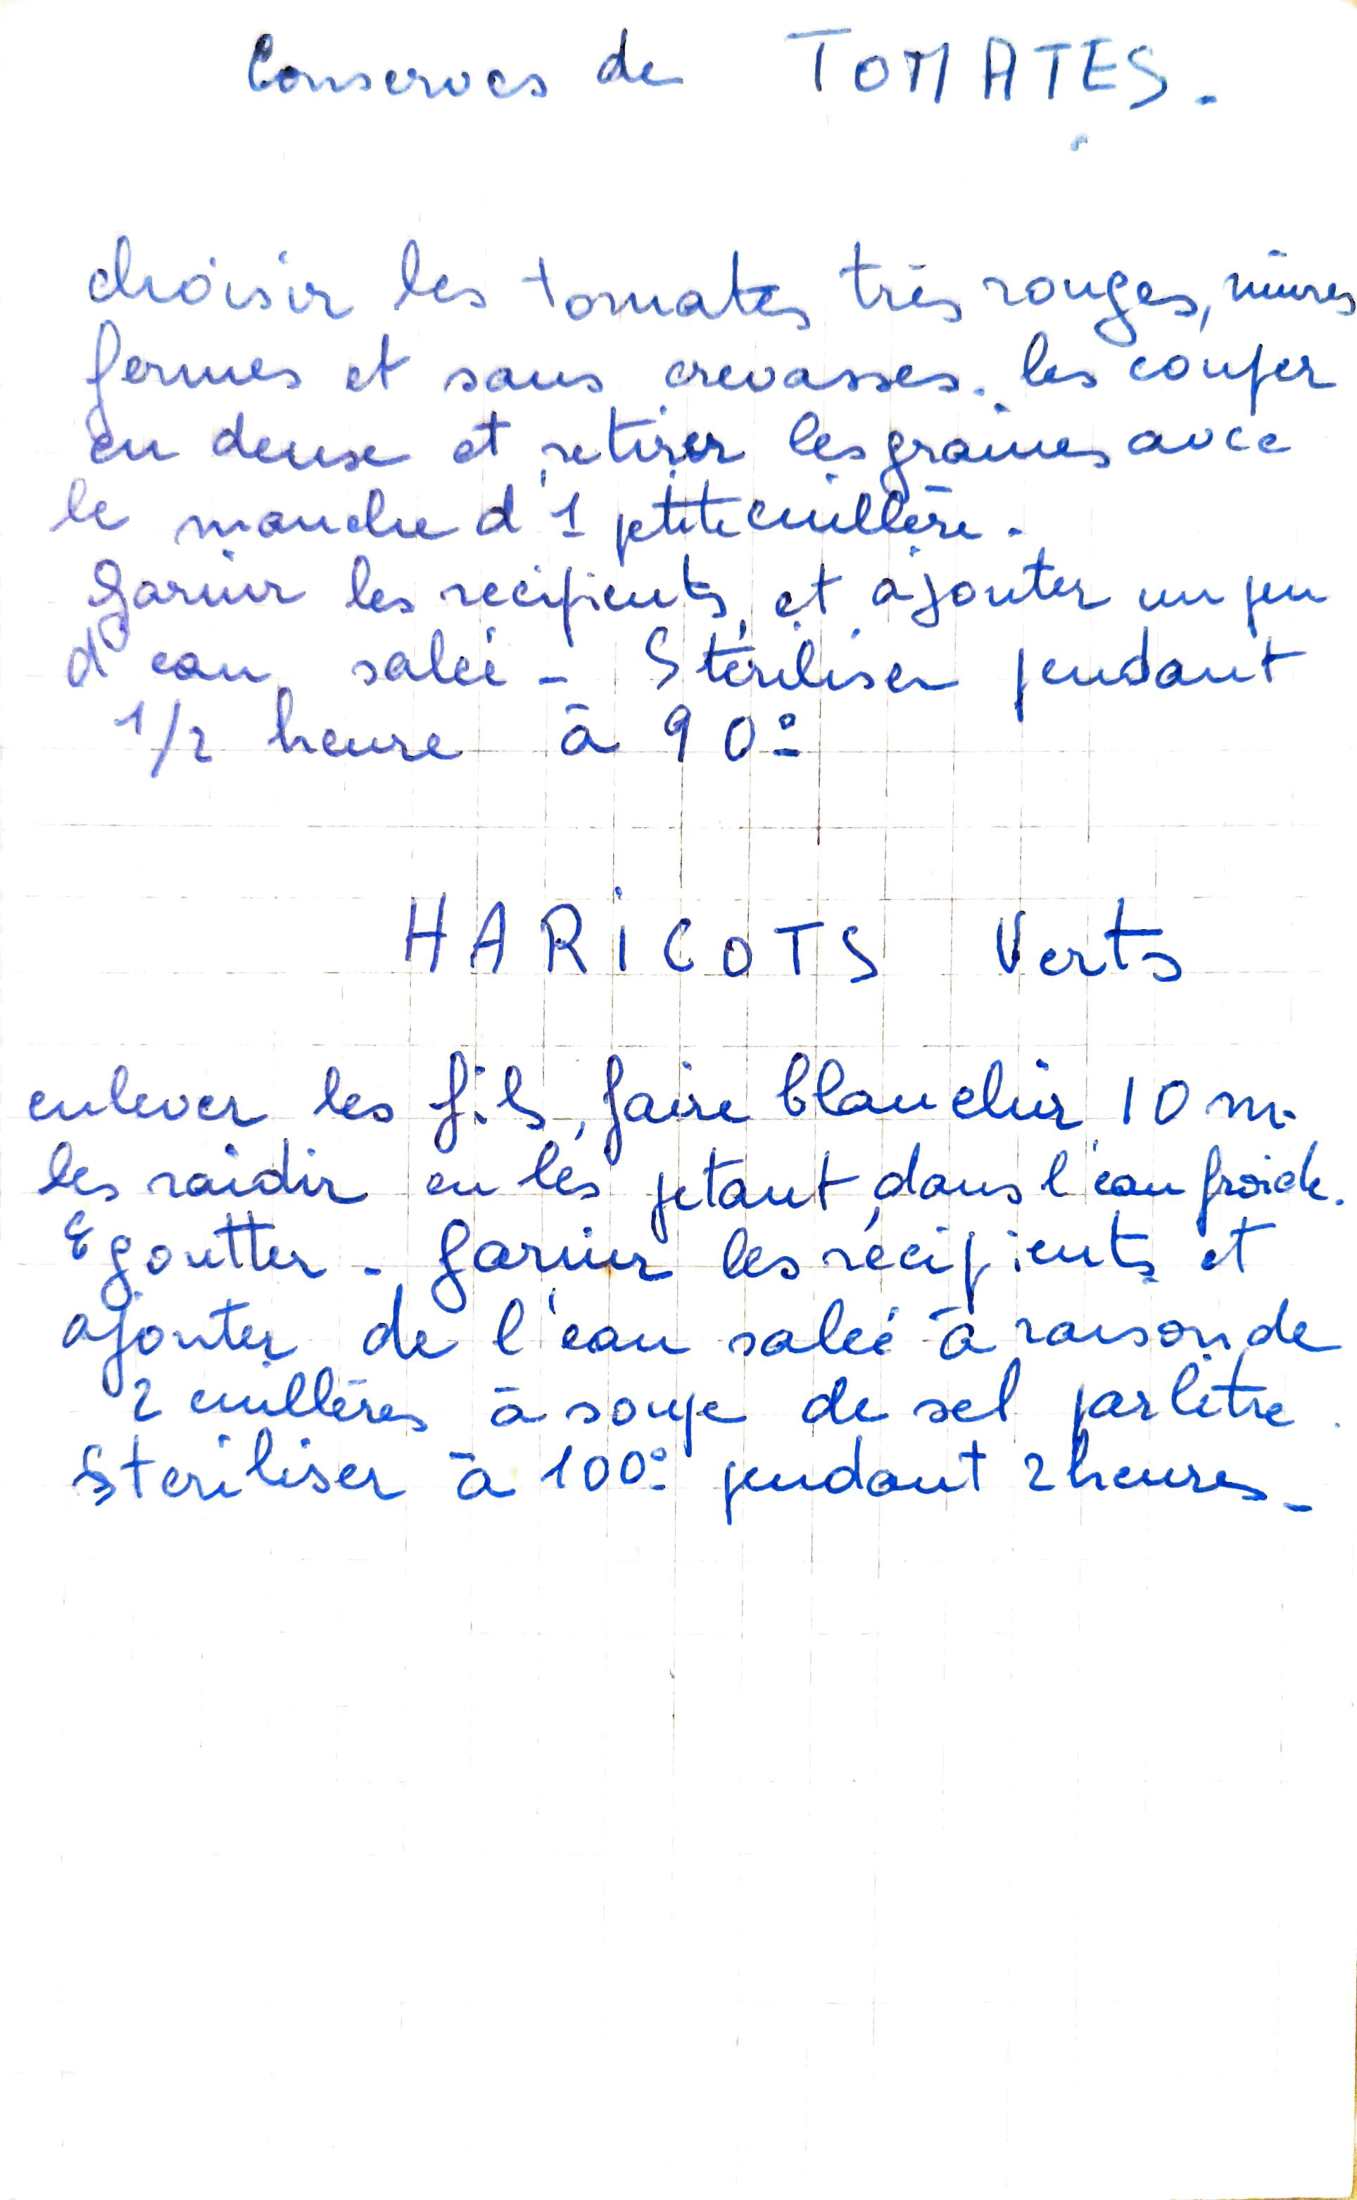 Conserves de TOMATES.
choisir les tomates très rouges, mûres
fermes et sans crevasses. les couper
en deux et retirer les graines avec
le manche d'1 petite cuillère.
Garnir les recipients, et ajouter un peu
d'eau salée - Stériliser pendant
1/2 heure à 90°
HARICOTS Verts
enlever les fils, faire blanchir 10 m.
les raidir en les jetant dans l'eau froide.
Egoutter - Garnir les récipients et
ajouter de l'eau salée à raison de
2 cuillères à soupe de sel par litre.
Steriliser à 100° pendant 2 heures -